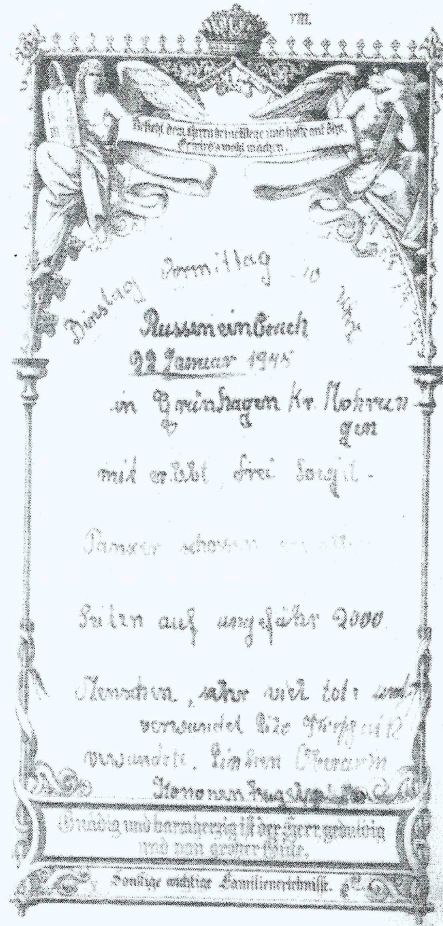 VIII.
Befiehl dem Herrn deine Wege und hoffe auf ihn,
Er wird's wohl machen.
Dinstag Vormittag 10 Uhr
Russeneinbruch
22 Januar 1945
in Grünhagen Kr. Mohrun
gen
mit erlebt, drei
Panzer schossen
Seiten auf ungefähr 2000
Menschen, sehr viel tote und
verwundet
verwundete, linken Oberarm
Gnädig und barmherzig ist der Herr, geduldig
und von großer Güte.
Sonstige wichtige Familienerlebnisse.